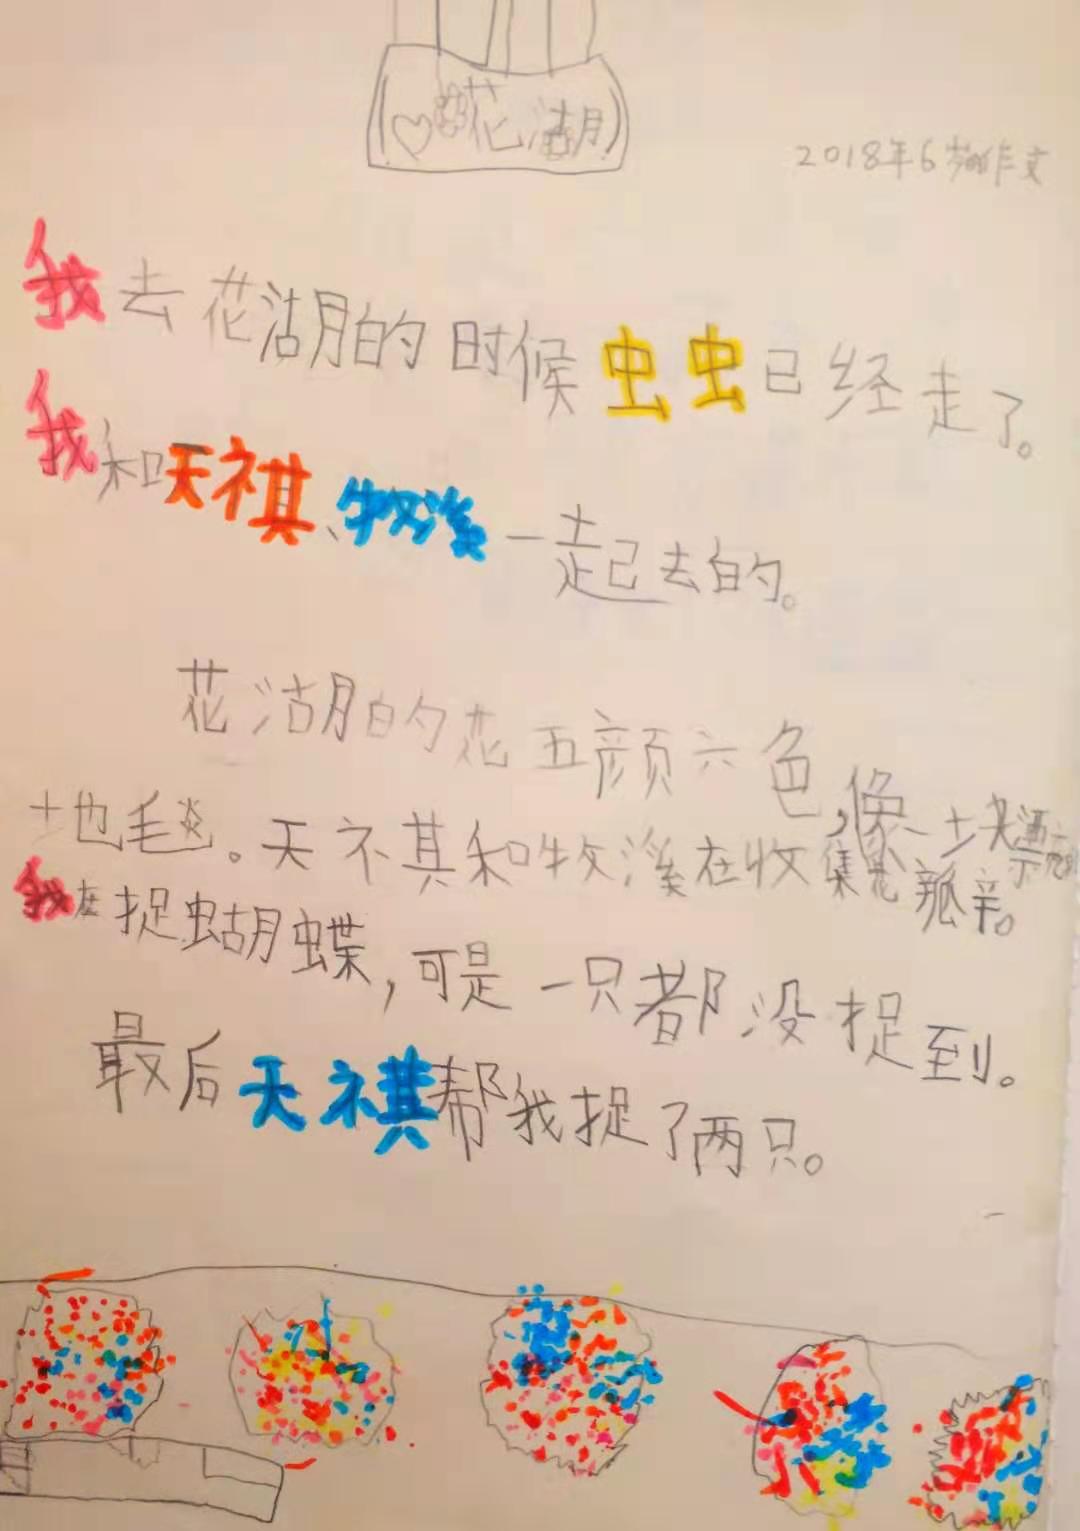 花湖
2018年6岁的作文
我去花湖的时候虫虫已经走了。
我和天祺、牧溪一起去的。
花湖的花五颜六色,像一块
地毯。天祺和牧溪在收集花瓣。
我在捉蝴蝶,可是一只都没捉到。
最后天祺帮我捉了两只。